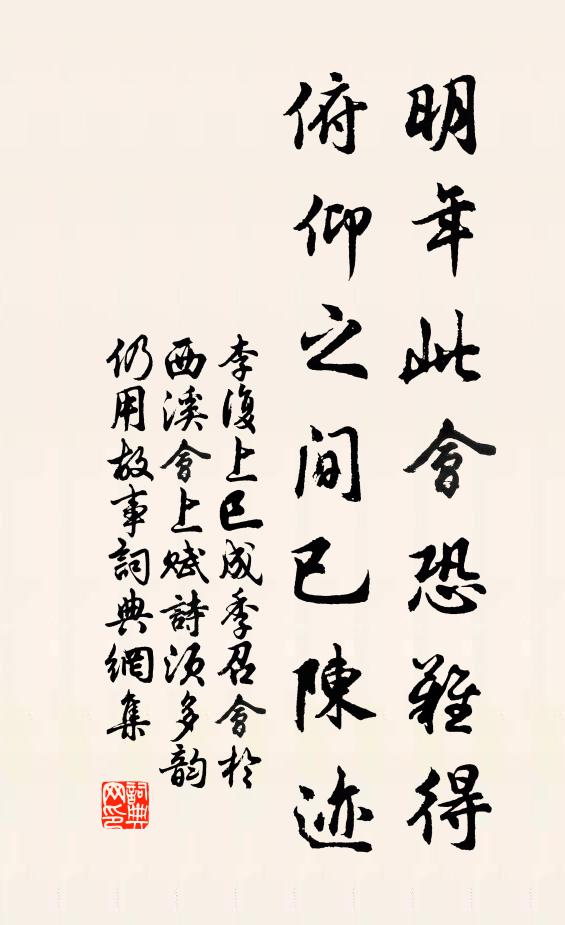 明年此會恐難得
俯仰之間已陳迹
李復上巳成季召會於
西溪會上賦詩須多韵
仍用故事詞典網集
詞典
网印